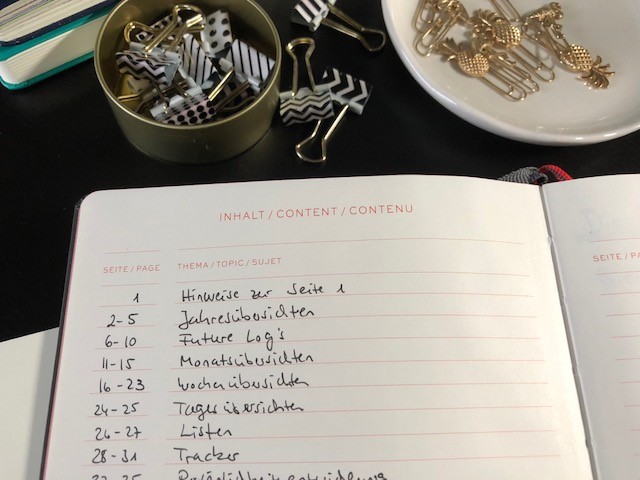 INHALT / CONTENT / CONTENU
SEITE / PAGE THEMA / TOPIC / SUJET
1 Hinweise zur Seite 1
2-5 Jahresübersichten
6-10 Future Log's
11-15 Monatsübersichten
16-23 Wochenübersichten
24-25 Tagesübersichten
26-27 Listen
28-31 Tracker
SEITE / PA